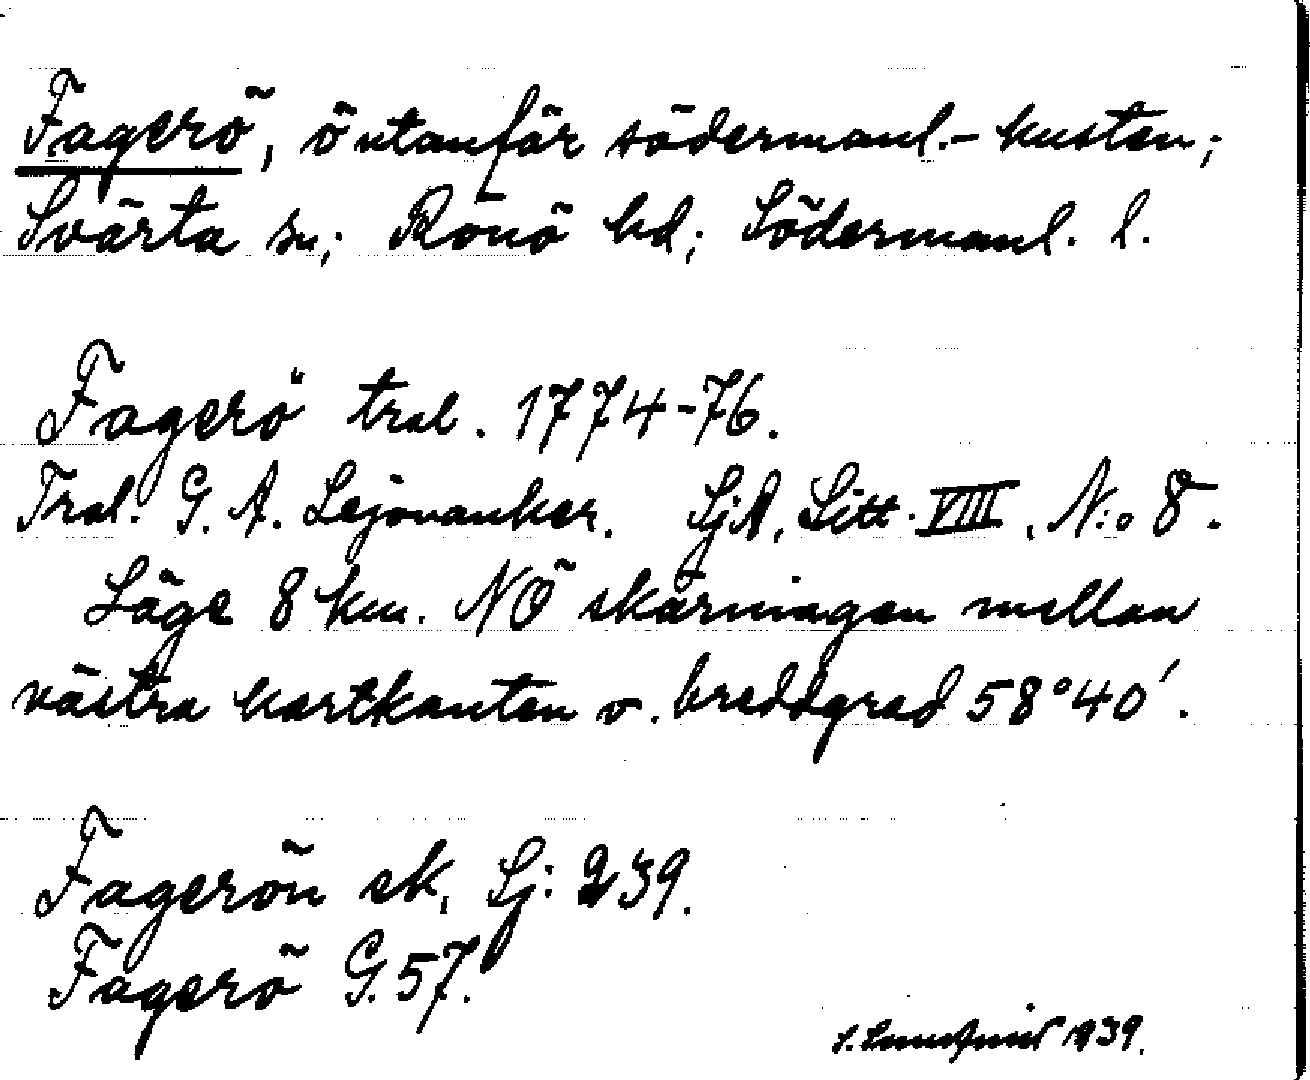 Fagerö, ö utanför södermanl.-kusten;
Svärta sn; Rönö hd; Södermanl. l.
Fagerö tral. 1774-76.
Tral. G. A. Lejonanker. SjA, Litt. VIII, N:o 8.
Läge 8 km. NÖ skärningen mellan
västra kartkanten o. breddgrad 58°40′.
Fagerön sk, Sj: 239.
Fagerö G. 57.
1939.